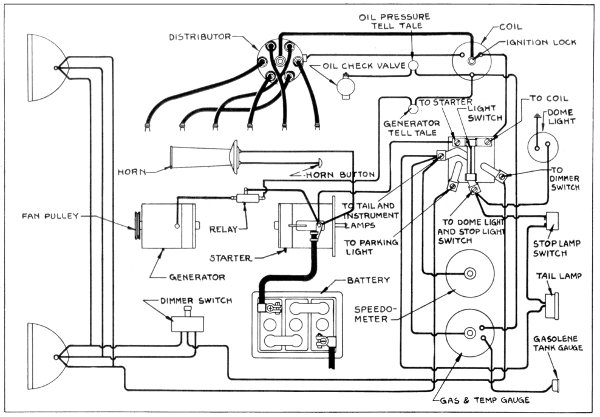 OIL PRESSURE
TELL TALE
COIL
DISTRIBUTOR
IGNITION LOCK
OIL CHECK VALVE
TO STARTER
LIGHT
SWITCH
TO COIL
DOME
LIGHT
GENERATOR
TELL TALE
HORN
HORN BUTTON
TO
DIMMER
SWITCH
TO TAIL AND
INSTRUMENT
LAMPS
FAN PULLEY
RELAY
TO DOME LIGHT
AND STOP LIGHT
SWITCH
TO PARKING
LIGHT
STOP LAMP
SWITCH
STARTER
GENERATOR
BATTERY
TAIL LAMP
DIMMER SWITCH
SPEEDO-
METER
GASOLENE
TANK GAUGE
GAS & TEMP GAUGE